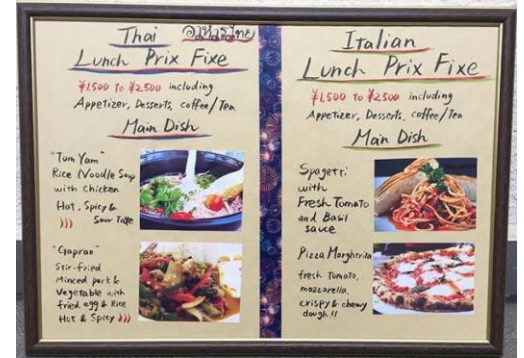 Thai อาหารไทย
Lunch Prix Fixe
¥1.500 to ¥2.500 including
Appetizer, Desserts, coffee/Tea
Main Dish
"Tom Yam"
Rice Noodle Soup
with Chicken
Hot, Spicy &
Sour Taste
"Gaprao"
Stir-fried
Minced pork &
Vegetable with
fried egg & Rice
Hot & Spicy
Italian
Lunch Prix Fixe
¥1.500 to ¥2.500 including
Appetizer, Desserts, coffee/Tea
Main Dish
Spagetti
with
Fresh Tomato
and Basil
sauce
Pizza Margherita
fresh Tomato,
mozzarella,
crispy & chewy
dough!!